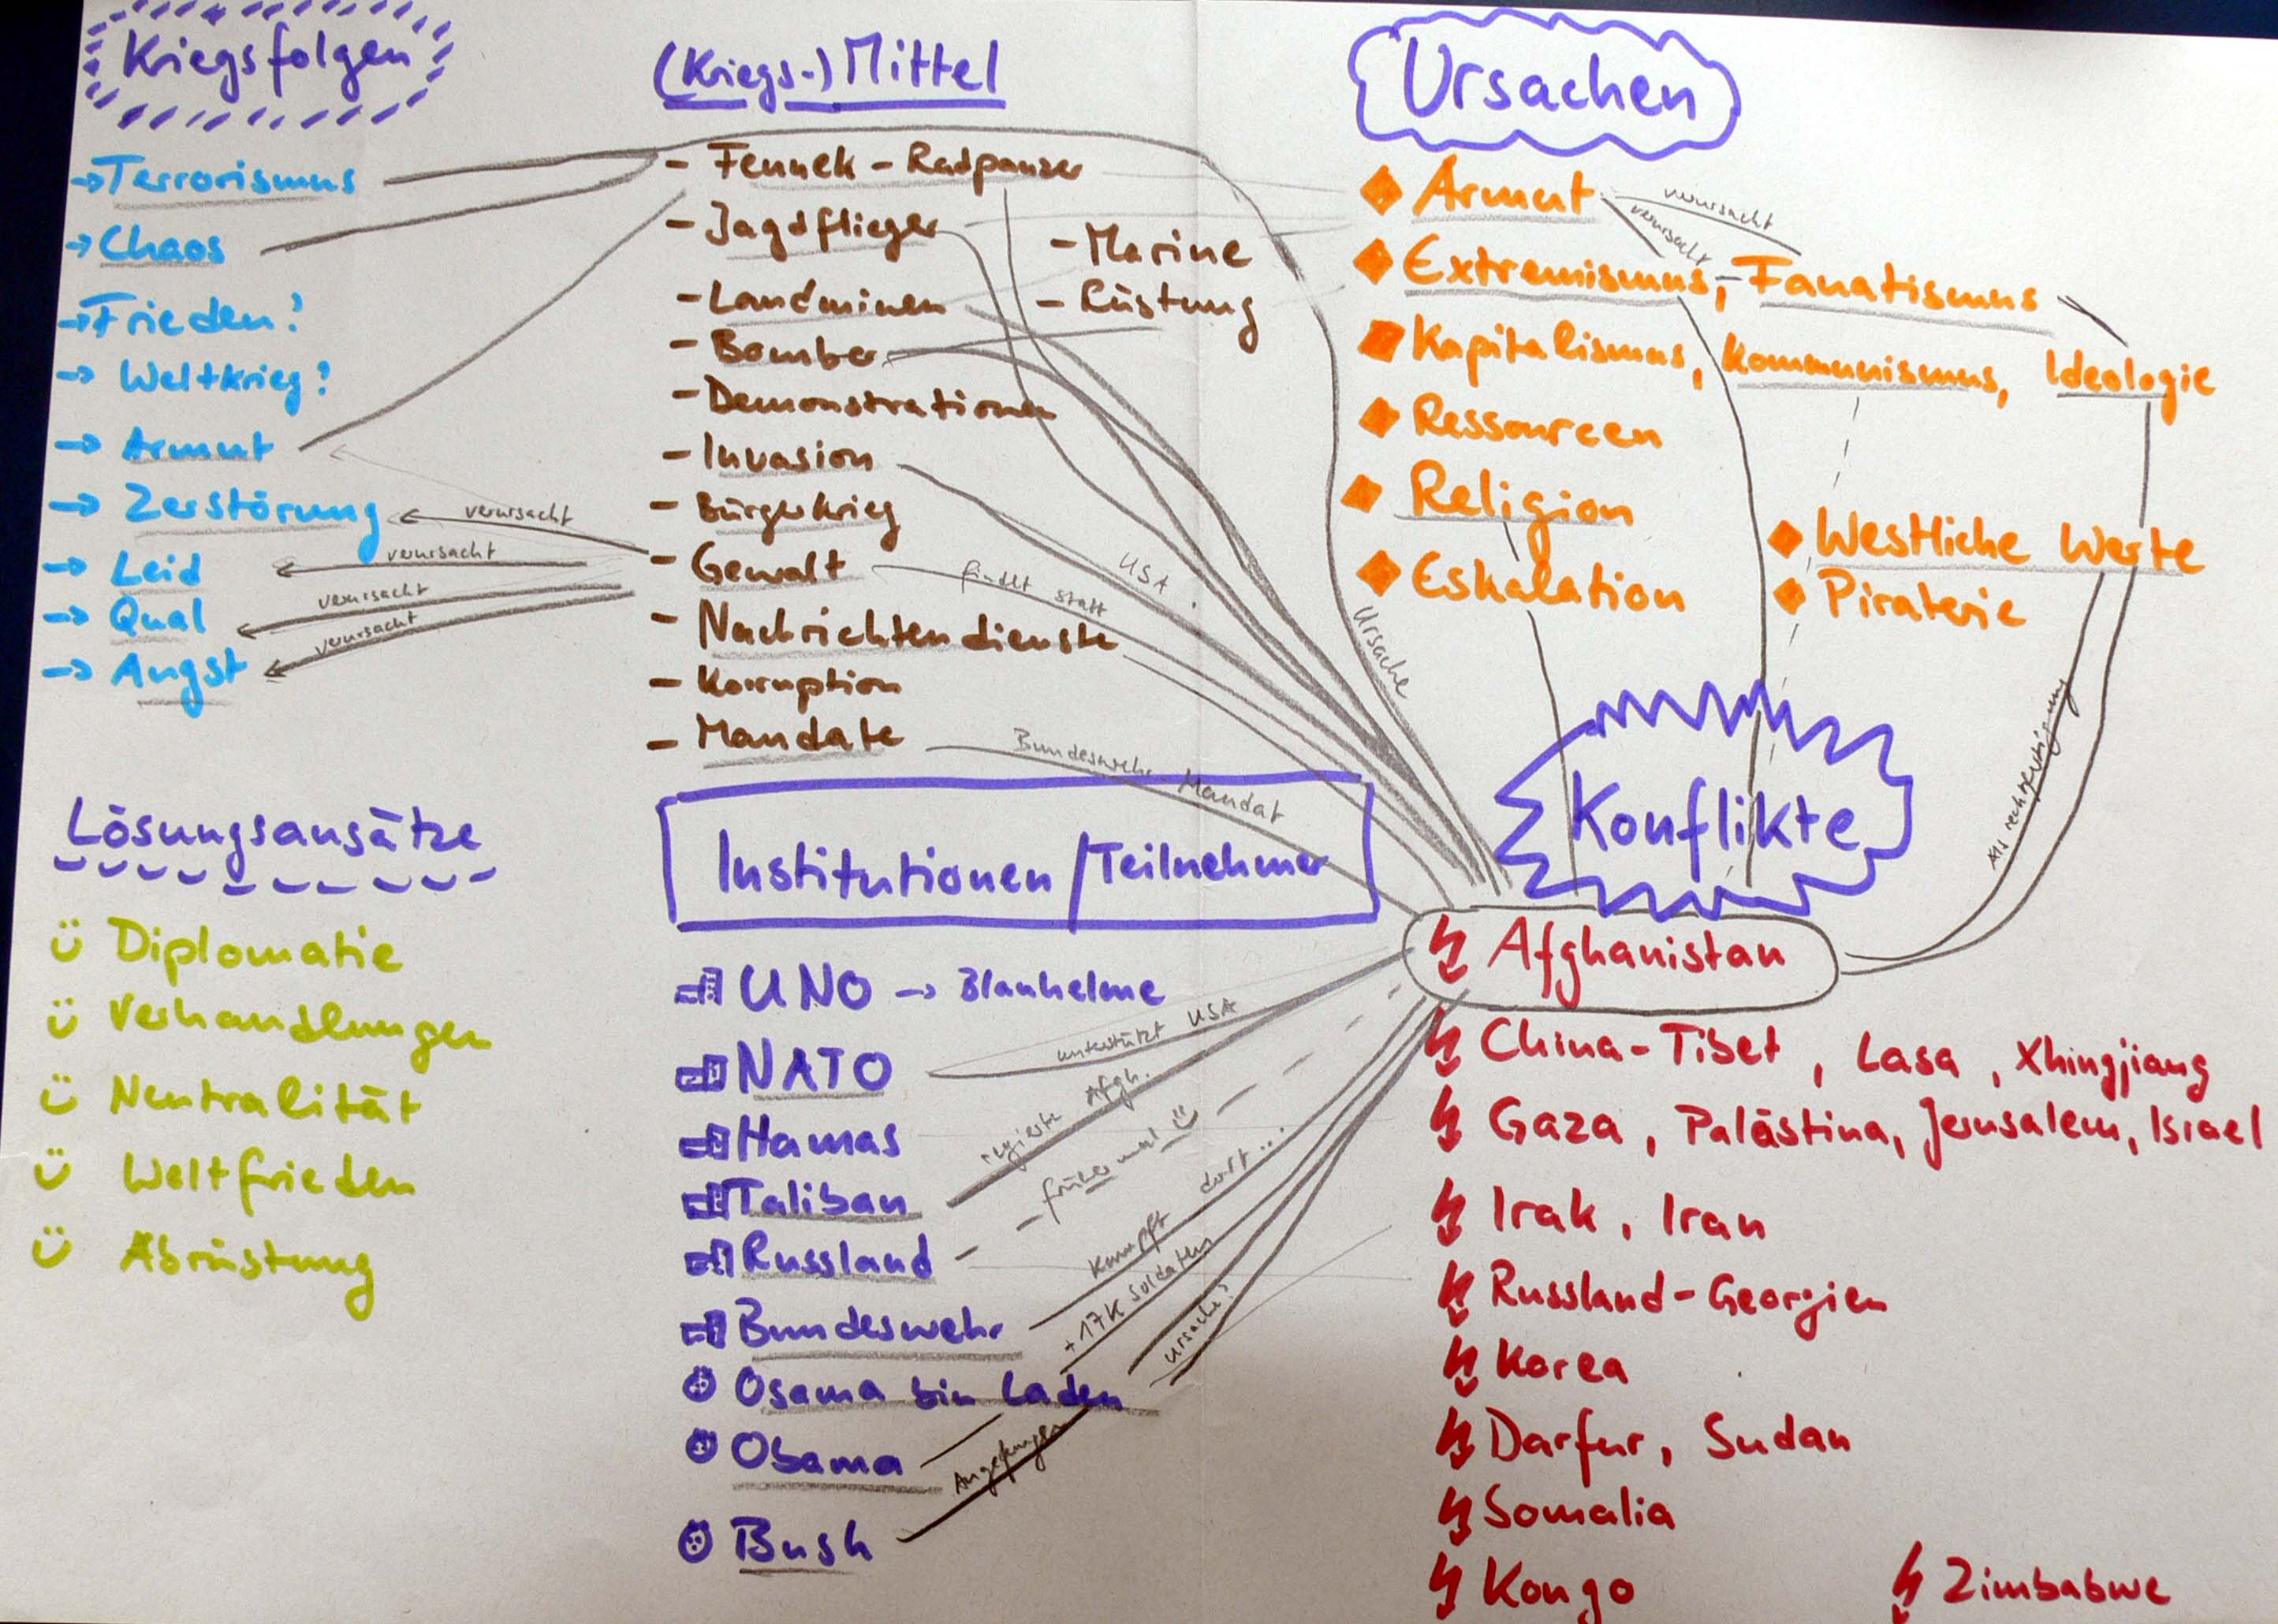 Kriegsfolgen
→ Terrorismus
→ Chaos
→ Frieden?
→ Weltkrieg?
→ Armut
→ Zerstörung
→ Leid
→ Qual
→ Angst
verursacht
verursacht
verursacht
verursacht
Lösungsansätze
Diplomatie
Verhandlungen
Neutralität
Weltfrieden
Abrüstung
(Kriegs-) Mittel
- Fennek - Radpanzer
- Jagdflieger
- Landminen
- Bomber
- Demonstrationen
- Invasion
- Bürgerkrieg
- Gewalt
- Nachrichtendienste
- Korruption
- Mandate
- Marine
- Rüstung
USA
findet statt
Bundeswehr Mandat
Ursache
Institutionen / Teilnehmer
UNO → Blauhelme
NATO
Hamas
Taliban
Russland
Bundeswehr
Osama bin Laden
Obama
Bush
unterstützt USA
regierte Afgh.
früher mal
kämpft dort...
+17K Soldaten
Ursache?
Angefangen
Ursachen
Armut
verursacht
verursacht
Extremismus, - Fanatismus
Kapitalismus, Kommunismus, Ideologie
Ressourcen
Religion
Eskalation
Westliche Werte
Piraterie
Als rechtfertigung
Konflikte
Afghanistan
China - Tibet, Lasa, Xhingjiang
Gaza, Palästina, Jerusalem, Israel
Irak, Iran
Russland - Georgien
Korea
Darfur, Sudan
Somalia
Kongo
Zimbabwe